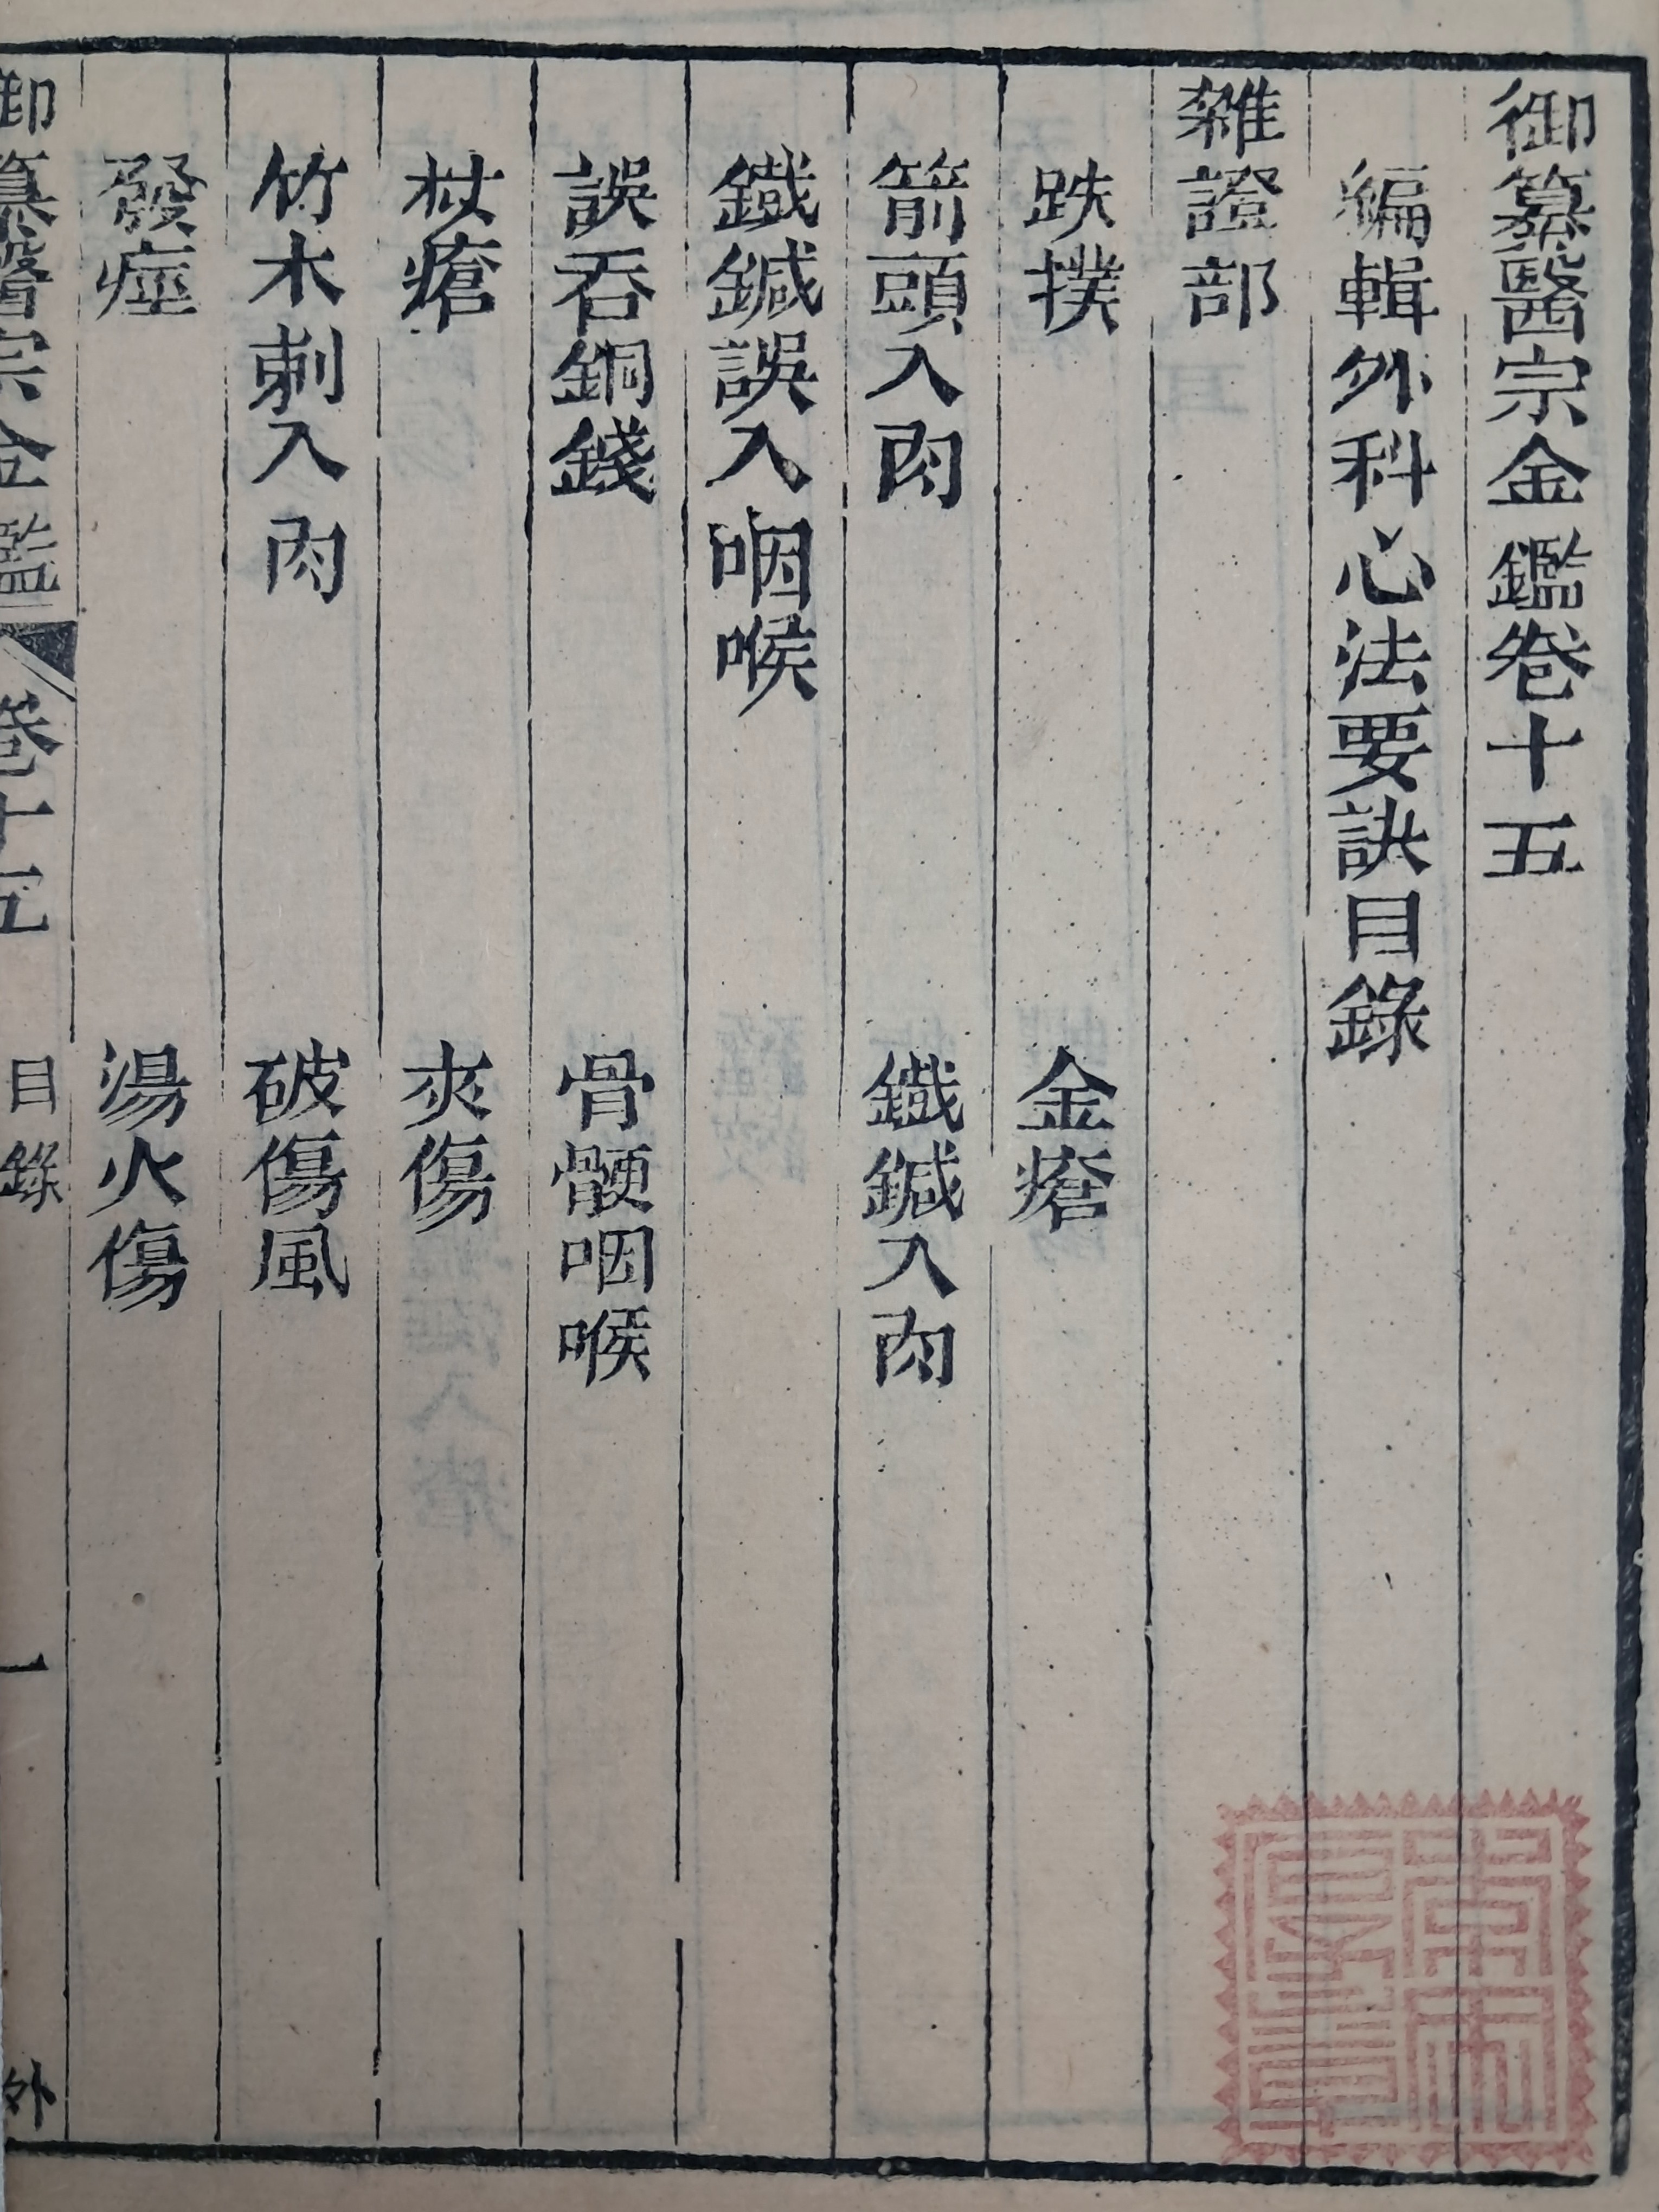 御纂醫宗金鑑卷十五
編輯外科心法要訣目錄
雜證部
跌撲 金瘡
箭頭入肉 鐵鍼入肉
鐵鍼誤入咽喉
誤吞銅錢 骨骾咽喉
杖瘡 夾傷
竹木刺入肉 破傷風
發痙 湯火傷
御纂醫宗金鑑 卷十五 目錄 一 外